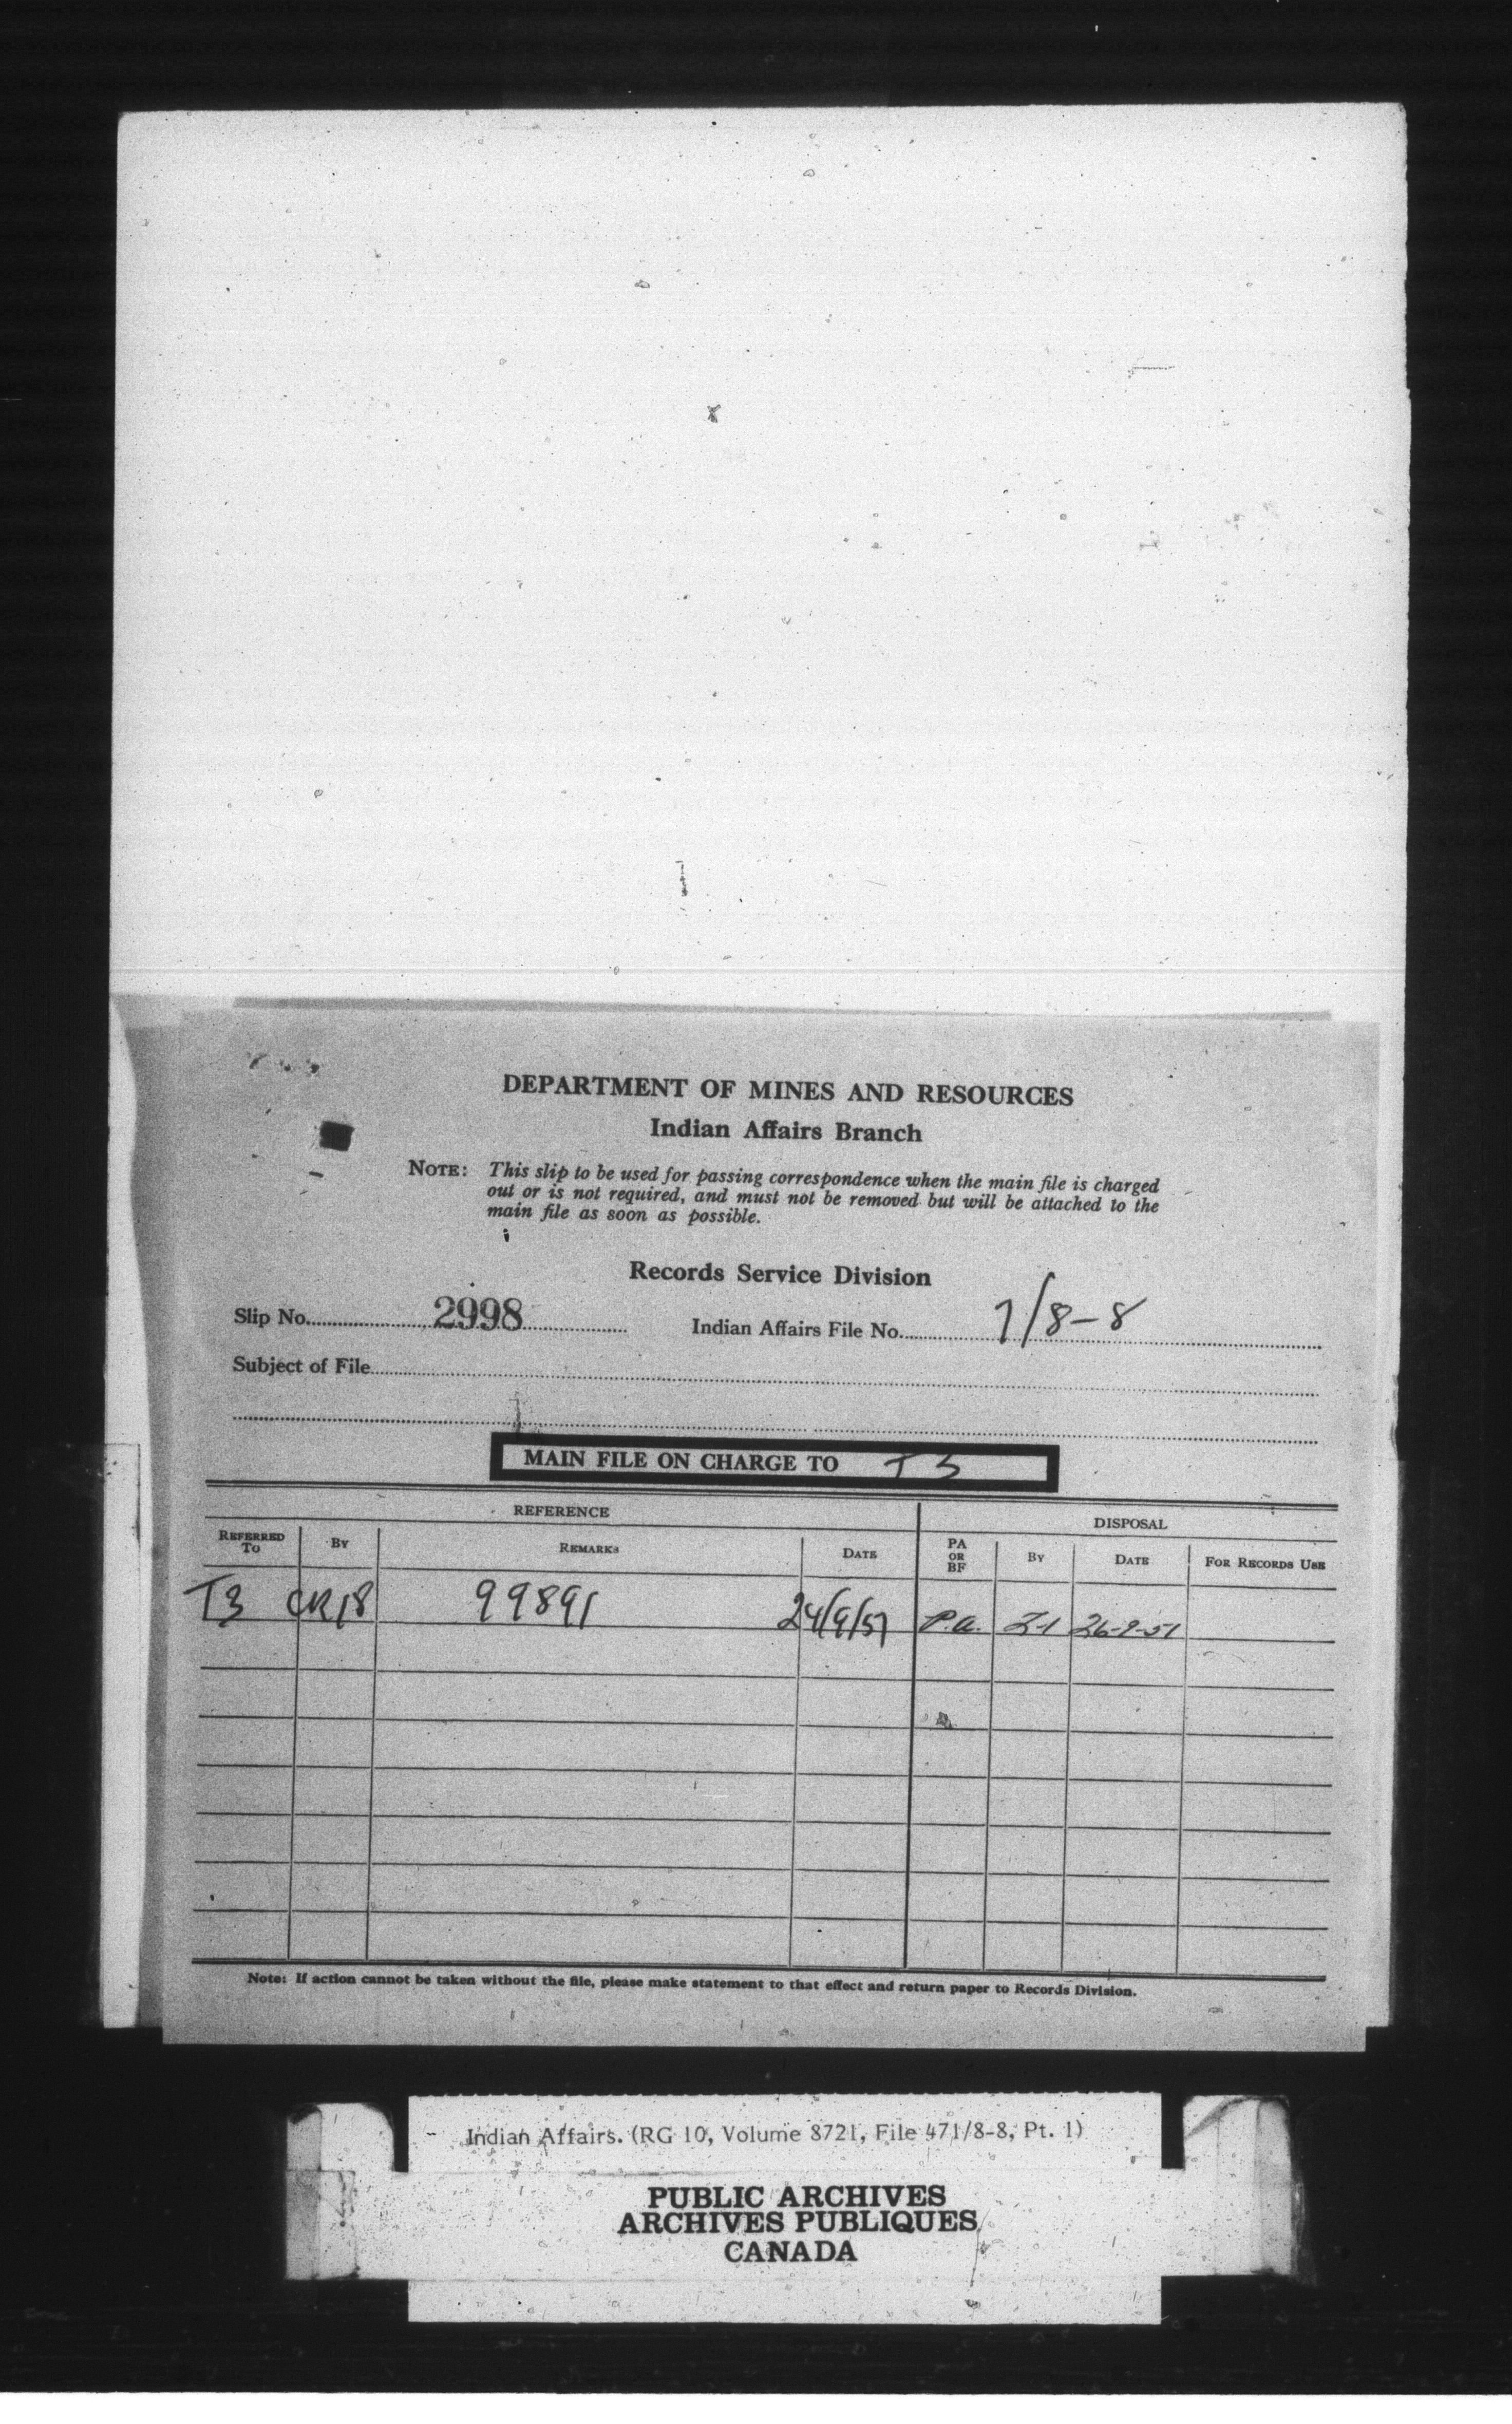 DEPARTMENT OF MINES AND RESOURCES
Indian Affairs Branch
NOTE: This slip to be used for passing correspondence when the main file is charged
out or is not required, and must not be removed but will be attached to the
main file as soon as possible.
Records Service Division
Slip No. 2998 Indian Affairs File No. 1/8-8
Subject of File
MAIN FILE ON CHARGE TO T3
REFERENCE DISPOSAL
REFERRED TO BY REMARKS DATE PA OR BF BY DATE FOR RECORDS USE
T3 CR18 99891 24/9/51 P.A. 26-9-51
Note: If action cannot be taken without the file, please make statement to that effect and return paper to Records Division.
Indian Affairs. (RG 10, Volume 8721, File 471/8-8, Pt. 1)
PUBLIC ARCHIVES
ARCHIVES PUBLIQUES
CANADA